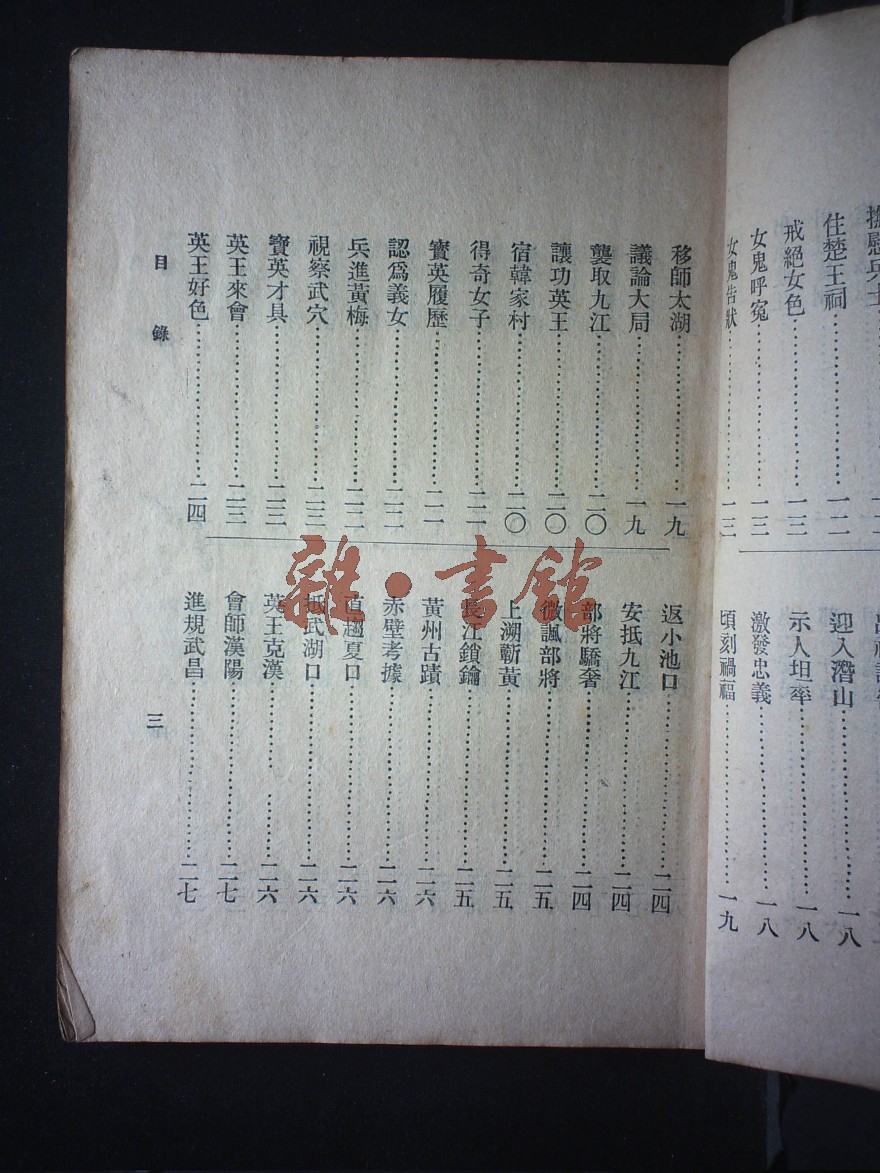 住楚王祠……………一二
戒絕女色……………一三
女鬼呼冤……………一三
女鬼告狀……………一三
迎入潛山……………一八
示人坦率……………一八
激發忠義……………一八
頃刻禍福……………一九
移師太湖……………一九
議論大局……………一九
襲取九江……………二〇
讓功英王……………二〇
宿韓家村……………二〇
得奇女子……………二一
寶英履歷……………二一
認爲義女……………二二
兵進黃梅……………二二
視察武穴……………二三
寶英才具……………二三
英王來會……………二三
英王好色……………二四
返小池口……………二四
安抵九江……………二四
部將驕奢……………二四
微諷部將……………二五
上溯蘄黃……………二五
長江鎖鑰……………二五
黃州古蹟……………二六
赤壁考據……………二六
直趨夏口……………二六
抵武湖口……………二六
英王克漢……………二六
會師漢陽……………二七
進規武昌……………二七
目錄
三
雜·書館